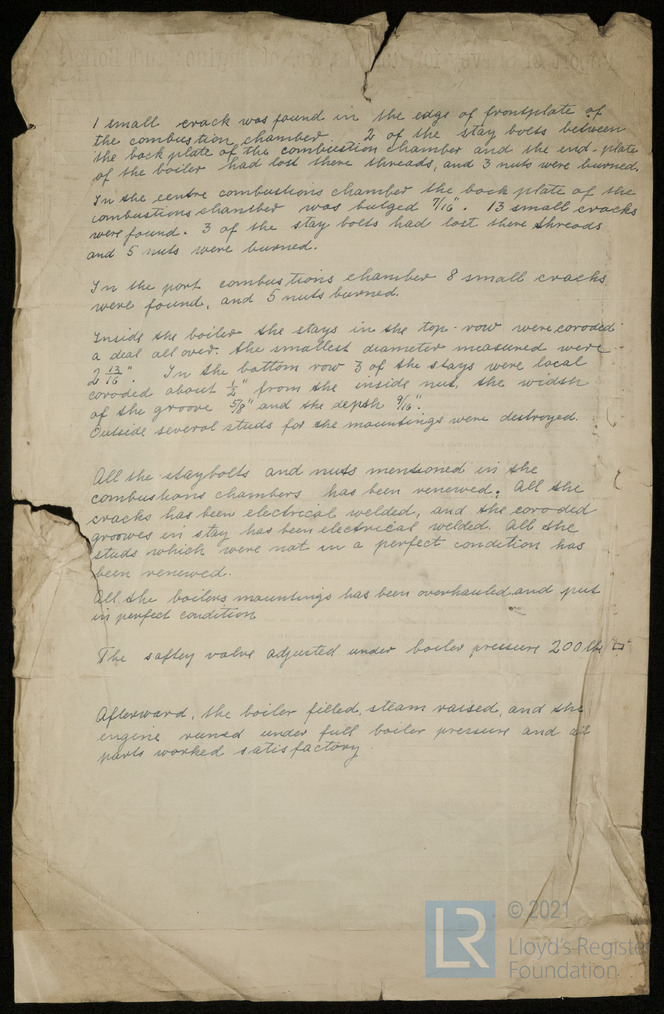 1 small crack was found in the edge of frontplate of
the combustion chamber. 2 of the stay bolts between
the back plate of the combustion chamber and the end-plate
of the boiler had lost there threads, and 3 nuts were burned.
In the centre combustions chamber the back plate of the
combustions chamber was bulged 7/16". 13 small cracks
were found. 3 of the stay bolts had lost there threads
and 5 nuts were burned.
In the port combustions chamber 8 small cracks
were found, and 5 nuts burned.
Inside the boiler the stays in the top-row were coroded
a deal all over. the smallest diameter measured were
2 13/16". In the bottom row 3 of the stays were local
coroded about 1/2" from the inside nut, the widsh
of the groove 5/8" and the depsh 9/16".
Outside several studs for the mountings were destroyed.
All the staybolts and nuts mentioned in the
combustions chambers has been renewed. All the
cracks has been electrical welded, and the coroded
grooves in stay has been electrical welded. All the
studs which were not in a perfect condition has
been renewed.
All the boilers mountings has been overhauled and put
in perfect condition
The saftey valve adjusted under boiler pressure 200 lbs □"
Afterward, the boiler filled, steam raised, and the
engine runed under full boiler pressure and all
parts worked satisfactory.
LR
© 2021
Lloyd's Register
Foundation